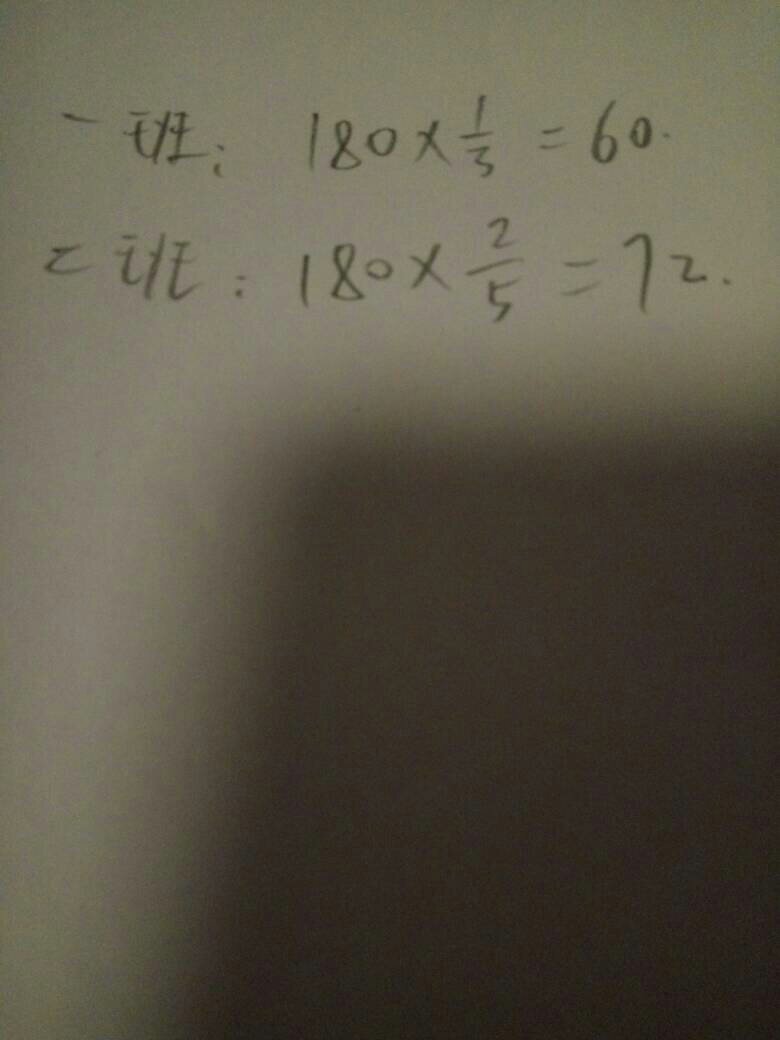 一班: 180×1/3=60.
二班: 180×2/5=72.